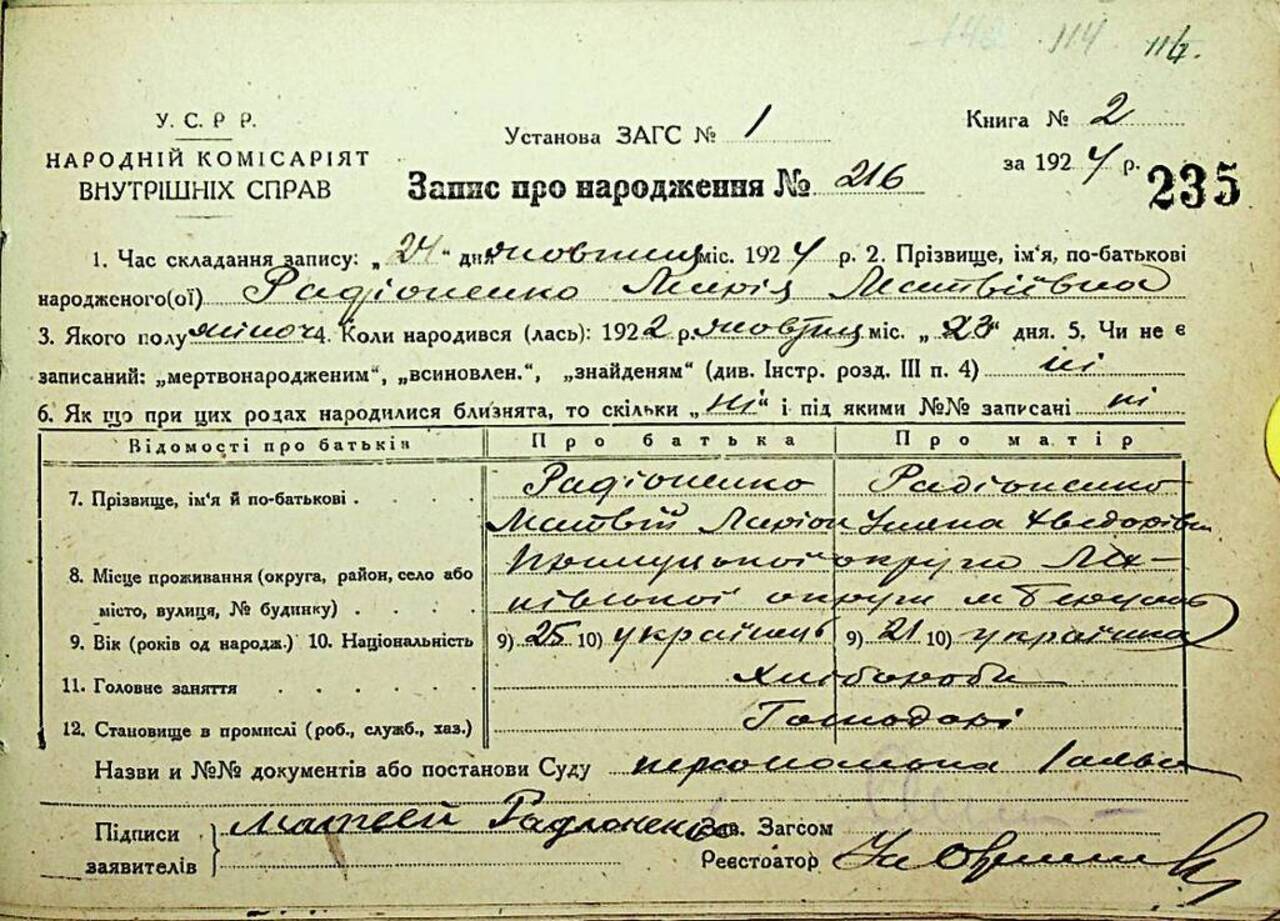 114 114.
У. С. Р Р.
НАРОДНІЙ КОМІСАРІЯТ
ВНУТРІШНІХ СПРАВ
Установа ЗАГС № 1
Книга № 2
за 1924 р.
235
Запис про народження № 216
1. Час складання запису: „24" дн. жовтня міс. 1924 р. 2. Прізвище, ім'я, по-батькові
народженого(ої) Радіоненко Марія Матвіївна
3. Якого полу жіноч 4. Коли народився (лась): 1922 р. жовтня міс. „23" дня. 5. Чи не є
записаний: „мертвонародженим", „всиновлен.", „знайденям" (див. Інстр. розд. III п. 4) ні
6. Як що при цих родах народилися близнята, то скільки „ні" і під якими №№ записані ні
Відомості про батьків Про батька Про матір
7. Прізвище, ім'я й по-батькові . . . . Радіоненко Радіоненко
Матвій Ларіон Уляна
8. Місце проживання (округа, район, село або Прилуцької округи
місто, вулиця, № будинку) . . . . округи м
9. Вік (років од народж.) 10. Національність 9) 25 10) українець 9) 21 10) українка
11. Головне заняття . . . . . . Хлібороби
12. Становище в промислі (роб., служб., хаз.) Господарі
Назви и №№ документів або постанови Суду персональна
Підписи заявителів Матвей Радионенко Зав. Загсом
Реєстратор